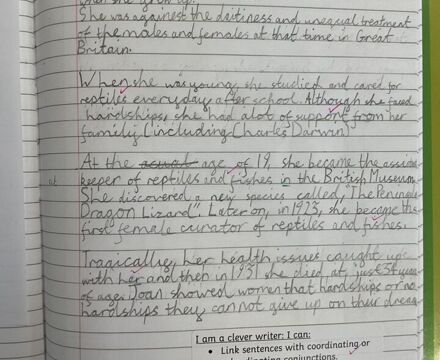 when she grew up.
She was against the daitiness and unequal treatment
of the males and females at that time in Great
Britain.
When she was young, she studied and cared for
reptiles everyday after school. Although she faced
hardships, she had alot of support from her
family (including Charles Darwin)
At the age of 19, she became the assis
keeper of reptiles and fishes in the British Museum
She discovered a new species called, "The Peningue
Dragon Lizard. Later on, in 1923, she became the
first female curator of reptiles and fishes.
Tragically, her health issues caught up
with her and then in 1931 she died at just 34 years
of age. Joan showed women that hardships or no
hardships they can not give up on their dream
I am a clever writer: I can:
• Link sentences with coordinating or
subordinating conjunctions.